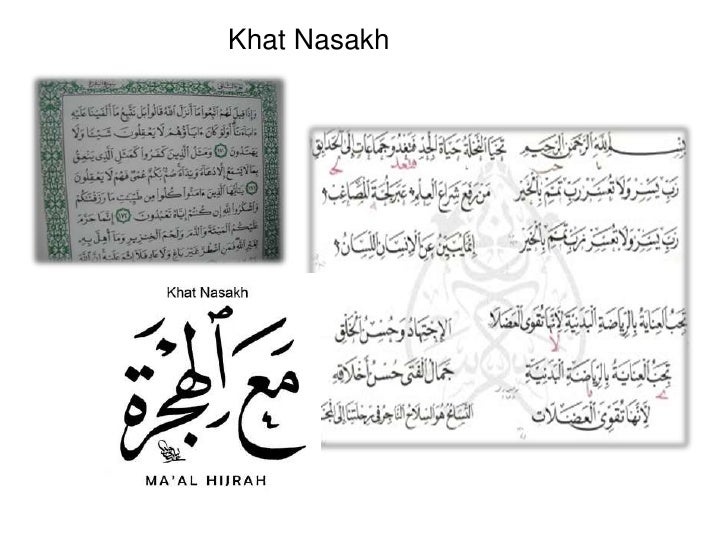 Khat Nasakh
وَإِذَا قِيلَ لَهُمُ ٱتَّبِعُوا۟ مَآ أَنزَلَ ٱللَّهُ قَالُوا۟ بَلْ نَتَّبِعُ مَآ أَلْفَيْنَا عَلَيْهِ
ءَابَآءَنَآ أَوَلَوْ كَانَ ءَابَآؤُهُمْ لَا يَعْقِلُونَ شَيْـًٔا وَلَا
يَهْتَدُونَ ١٧٠ وَمَثَلُ ٱلَّذِينَ كَفَرُوا۟ كَمَثَلِ ٱلَّذِى يَنْعِقُ
بِمَا لَا يَسْمَعُ إِلَّا دُعَآءً وَنِدَآءً صُمٌّۢ بُكْمٌ عُمْىٌ فَهُمْ لَا يَعْقِلُونَ
١٧١ يَـٰٓأَيُّهَا ٱلَّذِينَ ءَامَنُوا۟ كُلُوا۟ مِن طَيِّبَـٰتِ مَا رَزَقْنَـٰكُمْ
وَٱشْكُرُوا۟ لِلَّهِ إِن كُنتُمْ إِيَّاهُ تَعْبُدُونَ ١٧٢ إِنَّمَا حَرَّمَ
عَلَيْكُمُ ٱلْمَيْتَةَ وَٱلدَّمَ وَلَحْمَ ٱلْخِنزِيرِ وَمَآ أُهِلَّ بِهِۦ
لِغَيْرِ ٱللَّهِ فَمَنِ ٱضْطُرَّ غَيْرَ بَاغٍ وَلَا عَادٍ فَلَآ إِثْمَ عَلَيْهِ إِنَّ ٱللَّهَ
بسم الله الرحمن الرحيم
تحيا النحلة حياة الجد فتغدو جماعات إلى الحدائق
رب يسر ولا تعسر رب تمم بالخير
من رفع شراع العلم
رب يسر ولا تعسر رب تمم بالخير
إنما يبين عن الإنسان اللسان
تجب العناية بالرياضة البدنية لأنها تقوي العضلا
الاجتهاد وحسن الخلق
تجب العناية بالرياضة البدنية
جمال الفتى حسن أخلاقه
لأنها تقوي العضلات
التسامح هو السلاح الناجع في رحلتنا إلى
Khat Nasakh
مَعَ الْهِجْرَة
MA'AL HIJRAH